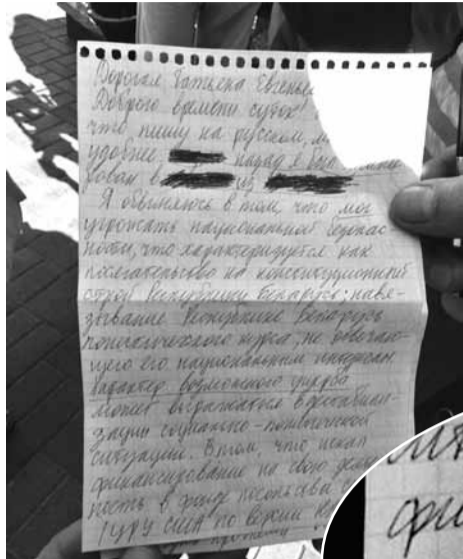 Дорогая Татьяна Евгенье
Доброго времени суток!
что пишу на русском, м
удобнее назад я
рован в из
Я обвиняюсь в том, что мог
угрожать национальной безопас
ности, что характеризуется как
посягательство на конституционный
строй Республики Беларусь; навя-
зывание Республике Беларусь
политического курса, не отвечаю-
щего его национальным интересам
Характер возможного ущерба
может выражаться в дестабили-
зации социально-политической
ситуации. В том, что искал
финансирование на свою
ность в фонде посольства
США по версии
фи